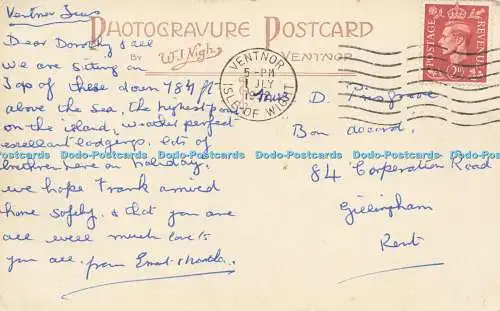 Ventnor
PHOTOGRAVURE POSTCARD
BY W.J. Nigh VENTNOR
POSTAGE REVENUE
VENTNOR
5-PM
JLY
ISLE OF WIGHT
Dear Dorothy & all
We are sitting on
Top of these down 784 ft
above the sea, the highest point
on the island, weather perfect
excellent lodgings. lots of
brethren here on holiday.
we hope Frank arrived
home safely. & that you are
all well much love to
you all. from
D.
Bon accord.
84 Corporation Road
Gillingham
Kent
Dodo-Postcards Dodo-Postcards Dodo-Postcards Dodo-Postcards Dodo-Postcards